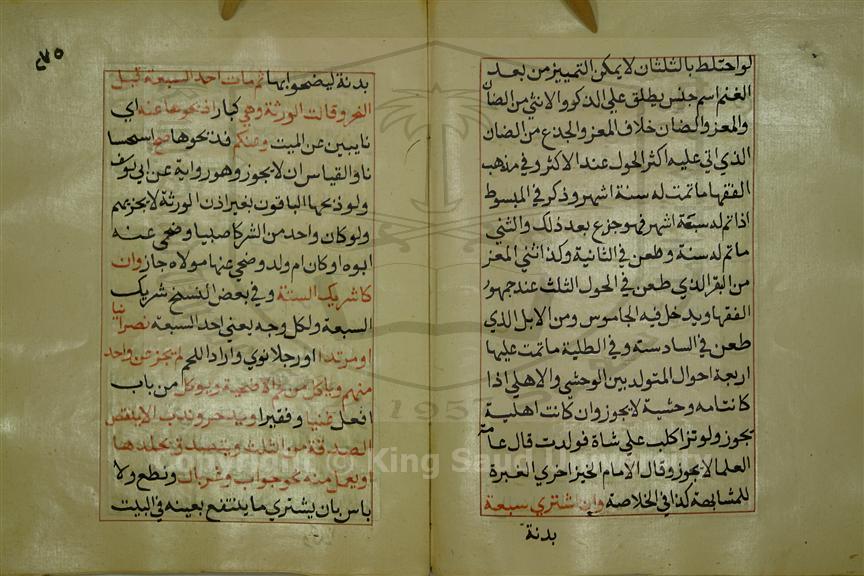 لو احتلط بالثلثان لا يمكن التمييز من بعد
الغنم اسم جنس يطلق على الذكور والانثى من الضان
والمعز والضان خلاف المعز والجدع من الضان
الذي اتى عليه اكثر الحول عند الاكثر وفي مذهب
الفقها ما تمت له ستة اشهر وذكر في المبسوط
اذا تم له سبعة اشهر فهو جزع بعد ذلك والثني
ما تم له سنة وطعن في الثانية وكذا اثني المعز
من البقر الذي طعن في الحول الثلث عند جمهور
الفقها ويدخل فيه الجاموس ومن الابل الذي
طعن في السادسة وفي الطلبة ما تمت عليها
اربعة احوال المتولد بين الوحشي والاهلي اذا
كانت امه وحشية لا يجوز وان كانت اهلية
يجوز ولو نزا كلب على شاة فولدت قال عامة
العلما لا يجوز وقال الامام الخيزاخزي العبرة
للمشابهة كذا في الخلاصة وان اشترى سبعة
بدنة
٧٥
بدنة ليضحوا بها ثم مات احد السبعة قبل
النحر وقالت الورثة وهي كبار اذبحوها عنه اي
نايبين عن الميت وعنكم فذبحوها صح استحسا
نا والقياس ان لا يجوز وهو رواية عن ابي يوسف
ولو ذبحها الباقون بغير اذن الورثة لا يجزيهم
ولو كان واحد من الشركا صبيا وضحى عنه
ابوه او كان ام ولد وضحى عنها مولاه جاز وان
كا شريك الستة وفي بعض النسخ شريك
السبعة ولكل وجه يعني احد السبعة نصرانيا
او مرتدا او رجلا نوى واراد اللحم لم يجز عن واحد
منهم وياكل من لحم الاضحية ويوكل من باب
افعل غنيا وفقيرا ويدخر وندب ان لا ينقص
الصدقة من الثلث ويتصدق بجلدها
او يعمل منه نحو جراب وغربال ونطع ولا
باس بان يشتري ما ينتفع بعينه في البيت
Copyright © King Saud University
1957